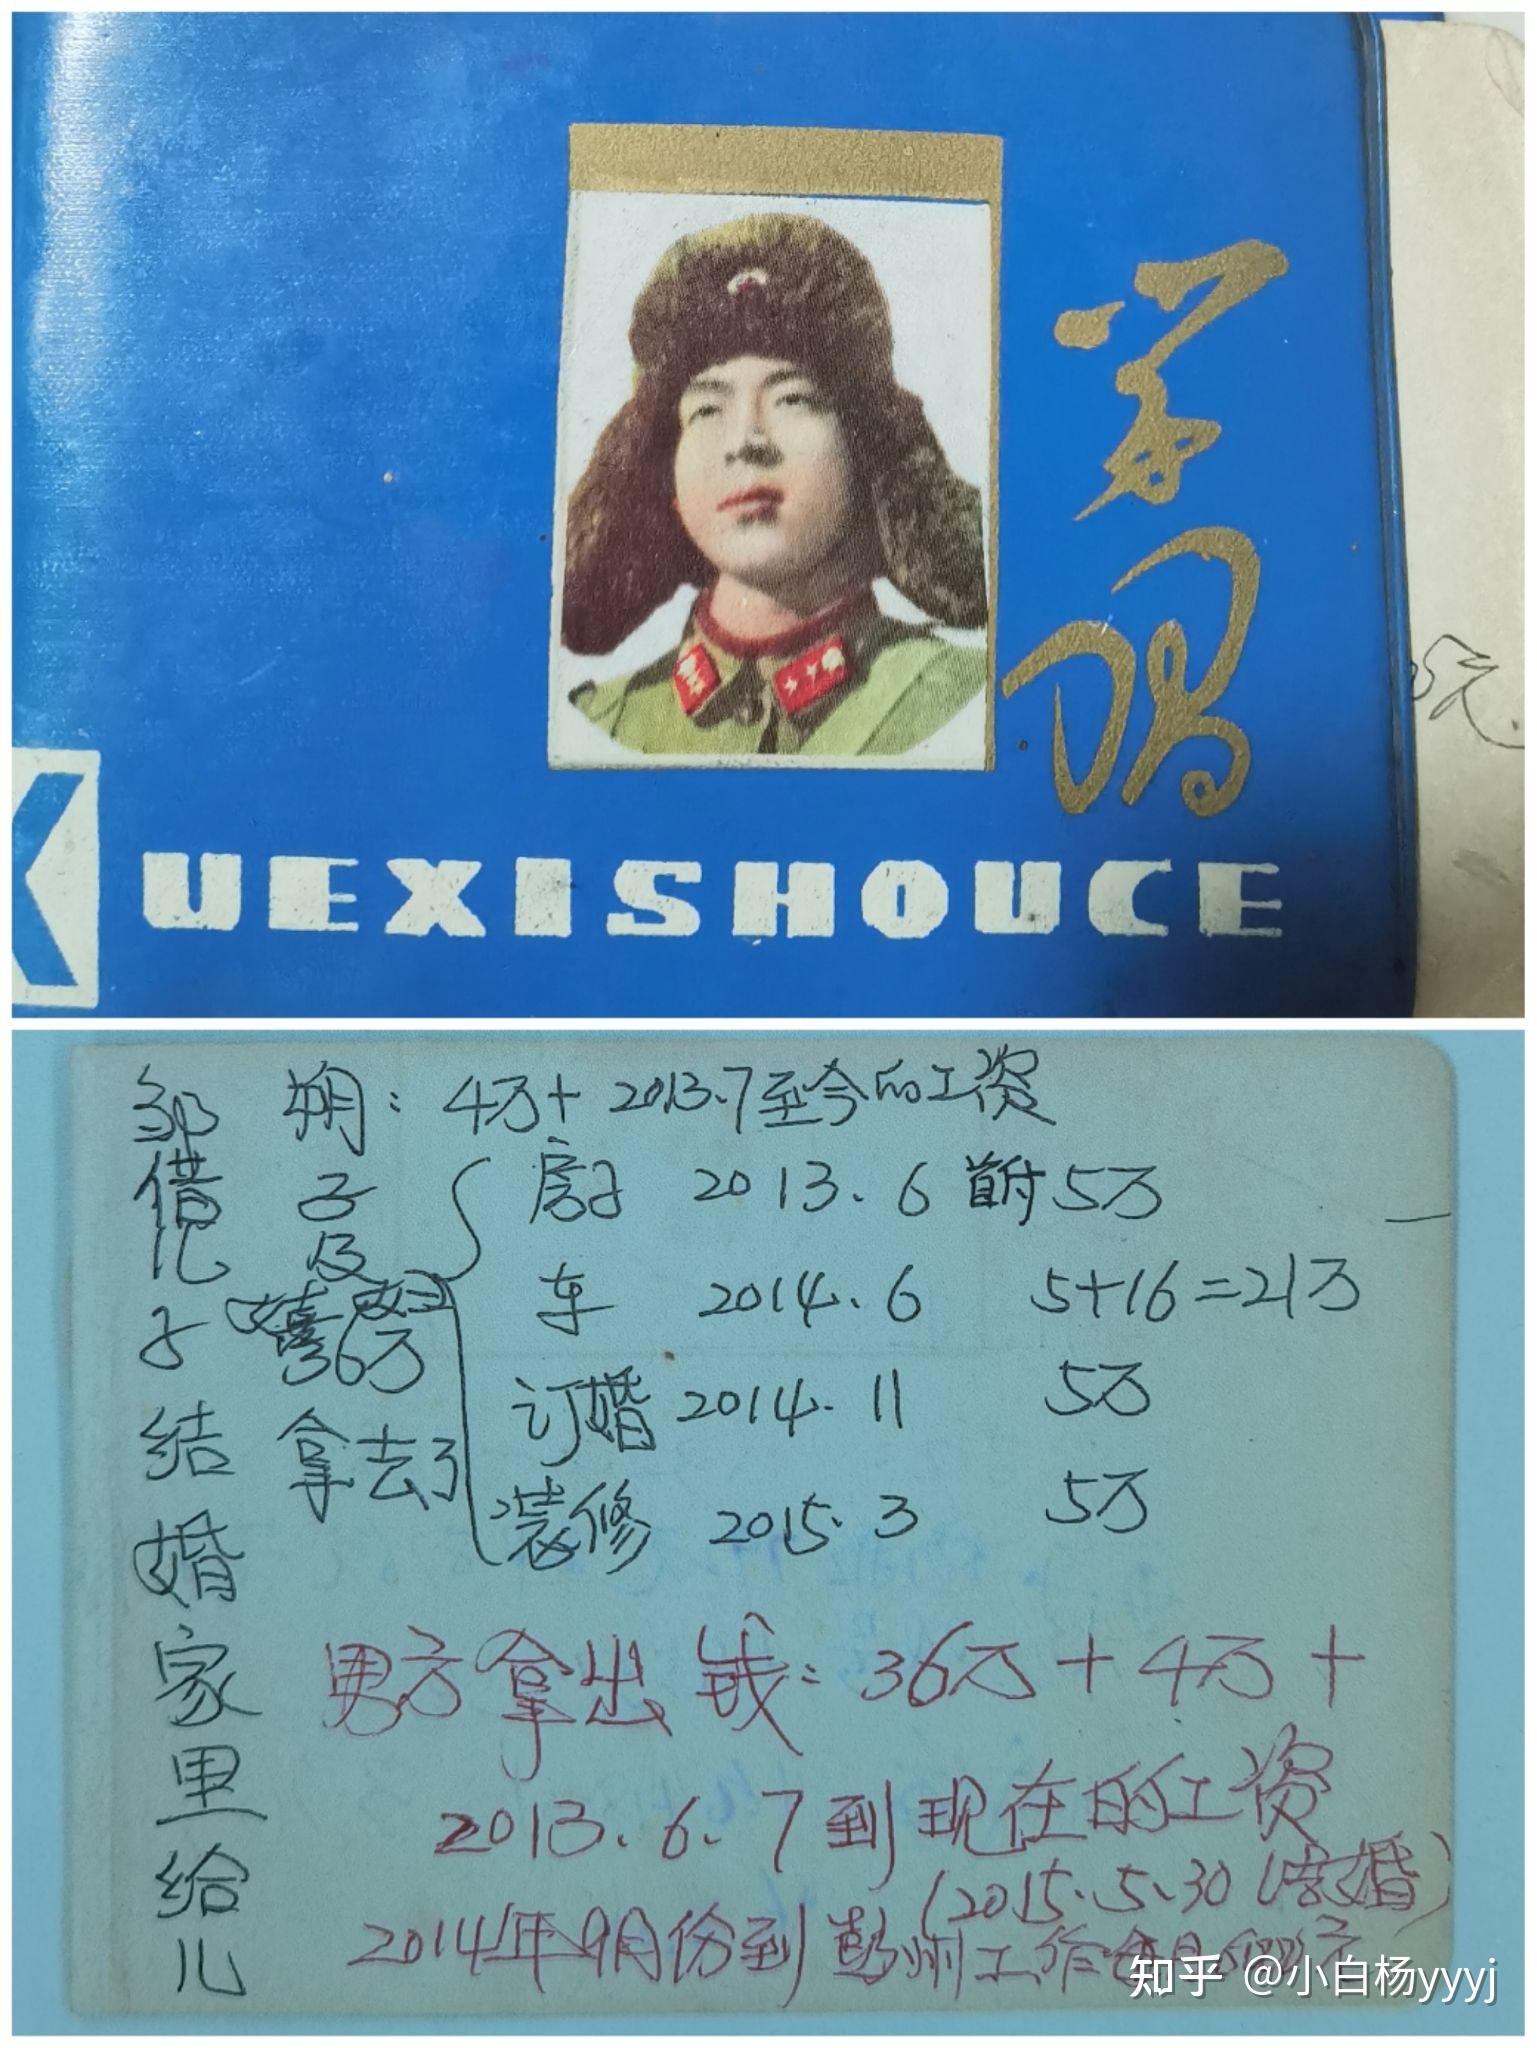 学习
XUEXISHOUCE
5元
邹朔：4万+2013.7至今的工资
借儿子结婚家里给儿
子及媳妇36万拿去了
房子 2013.6 首付5万
车 2014.6 5+16=21万
订婚 2014.11 5万
装修 2015.3 5万
男方拿出钱：36万+4万+
2013.6.7到现在的工资
(2015.5.30结婚)
2014年9月份到彭州工作每月
知乎 @小白杨yyyj